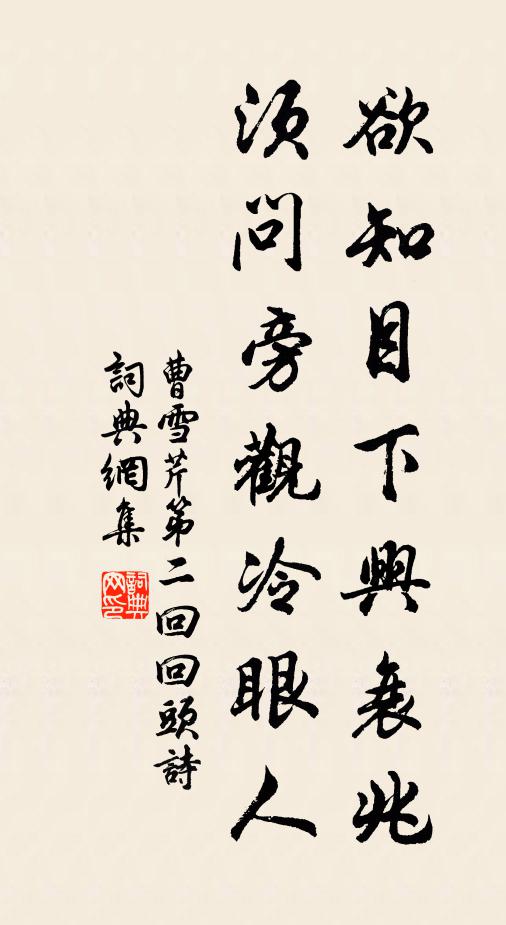 欲知目下興衰兆
須問旁觀冷眼人
曹雪芹第二回回頭詩
詞典網集
詞典网印